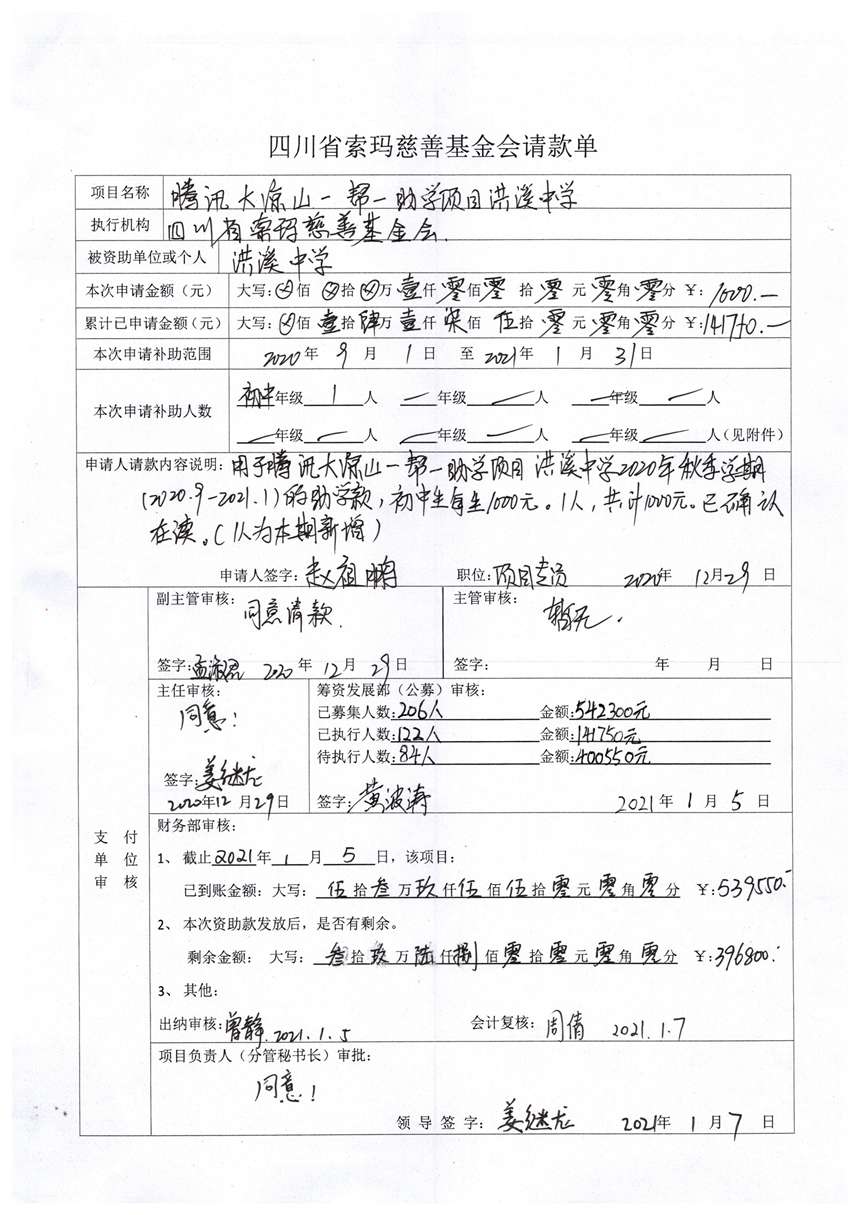 四川省索玛慈善基金会请款单
项目名称 腾讯大凉山一帮一助学项目洪溪中学
执行机构 四川省索玛慈善基金会.
被资助单位或个人 洪溪中学
本次申请金额（元） 大写:⊗佰 ⊗拾 ⊗万 壹仟 零佰 零拾 零元 零角 零分 ￥: 1000.—
累计已申请金额（元） 大写:⊗佰 壹拾 肆万 壹仟 柒佰 伍拾 零元 零角 零分 ￥: 141750.—
本次申请补助范围 2020年 9月 1日 至 2021年 1月 31日
本次申请补助人数 初中年级 1 人 — 年级 — 人 — 年级 — 人
— 年级 — 人 — 年级 — 人 — 年级 — 人（见附件）
申请人请款内容说明: 用于腾讯大凉山一帮一助学项目洪溪中学2020年秋季学期
(2020.9-2021.1)的助学款，初中生每生1000元。1人，共计1000元。已确认
在读。(1人为本期新增)
申请人签字: 赵祖鹏 职位: 项目专员 2020年 12月29日
支付单位审核
副主管审核: 主管审核:
同意请款. 暂无.
签字: 孟淑君 2020年12月29日 签字: 年 月 日
主任审核: 筹资发展部（公募）审核:
同意! 已募集人数: 206人 金额: 542300元
已执行人数: 122人 金额: 141750元
待执行人数: 84人 金额: 400550元
签字: 姜继龙
2020年12月29日 签字: 黄波涛 2021年1月5日
财务部审核:
1、 截止2021年 1月 5日，该项目:
已到账金额: 大写: 伍拾叁万玖仟伍佰伍拾零元零角零分 ￥: 539550.-
2、 本次资助款发放后，是否有剩余。
剩余金额: 大写: 叁拾玖万陆仟捌佰零拾零元零角零分 ￥: 396800.-
3、 其他:
出纳审核: 曾静 2021.1.5 会计复核: 周倩 2021.1.7
项目负责人（分管秘书长）审批:
同意!
领导签字: 姜继龙 2021年1月7日